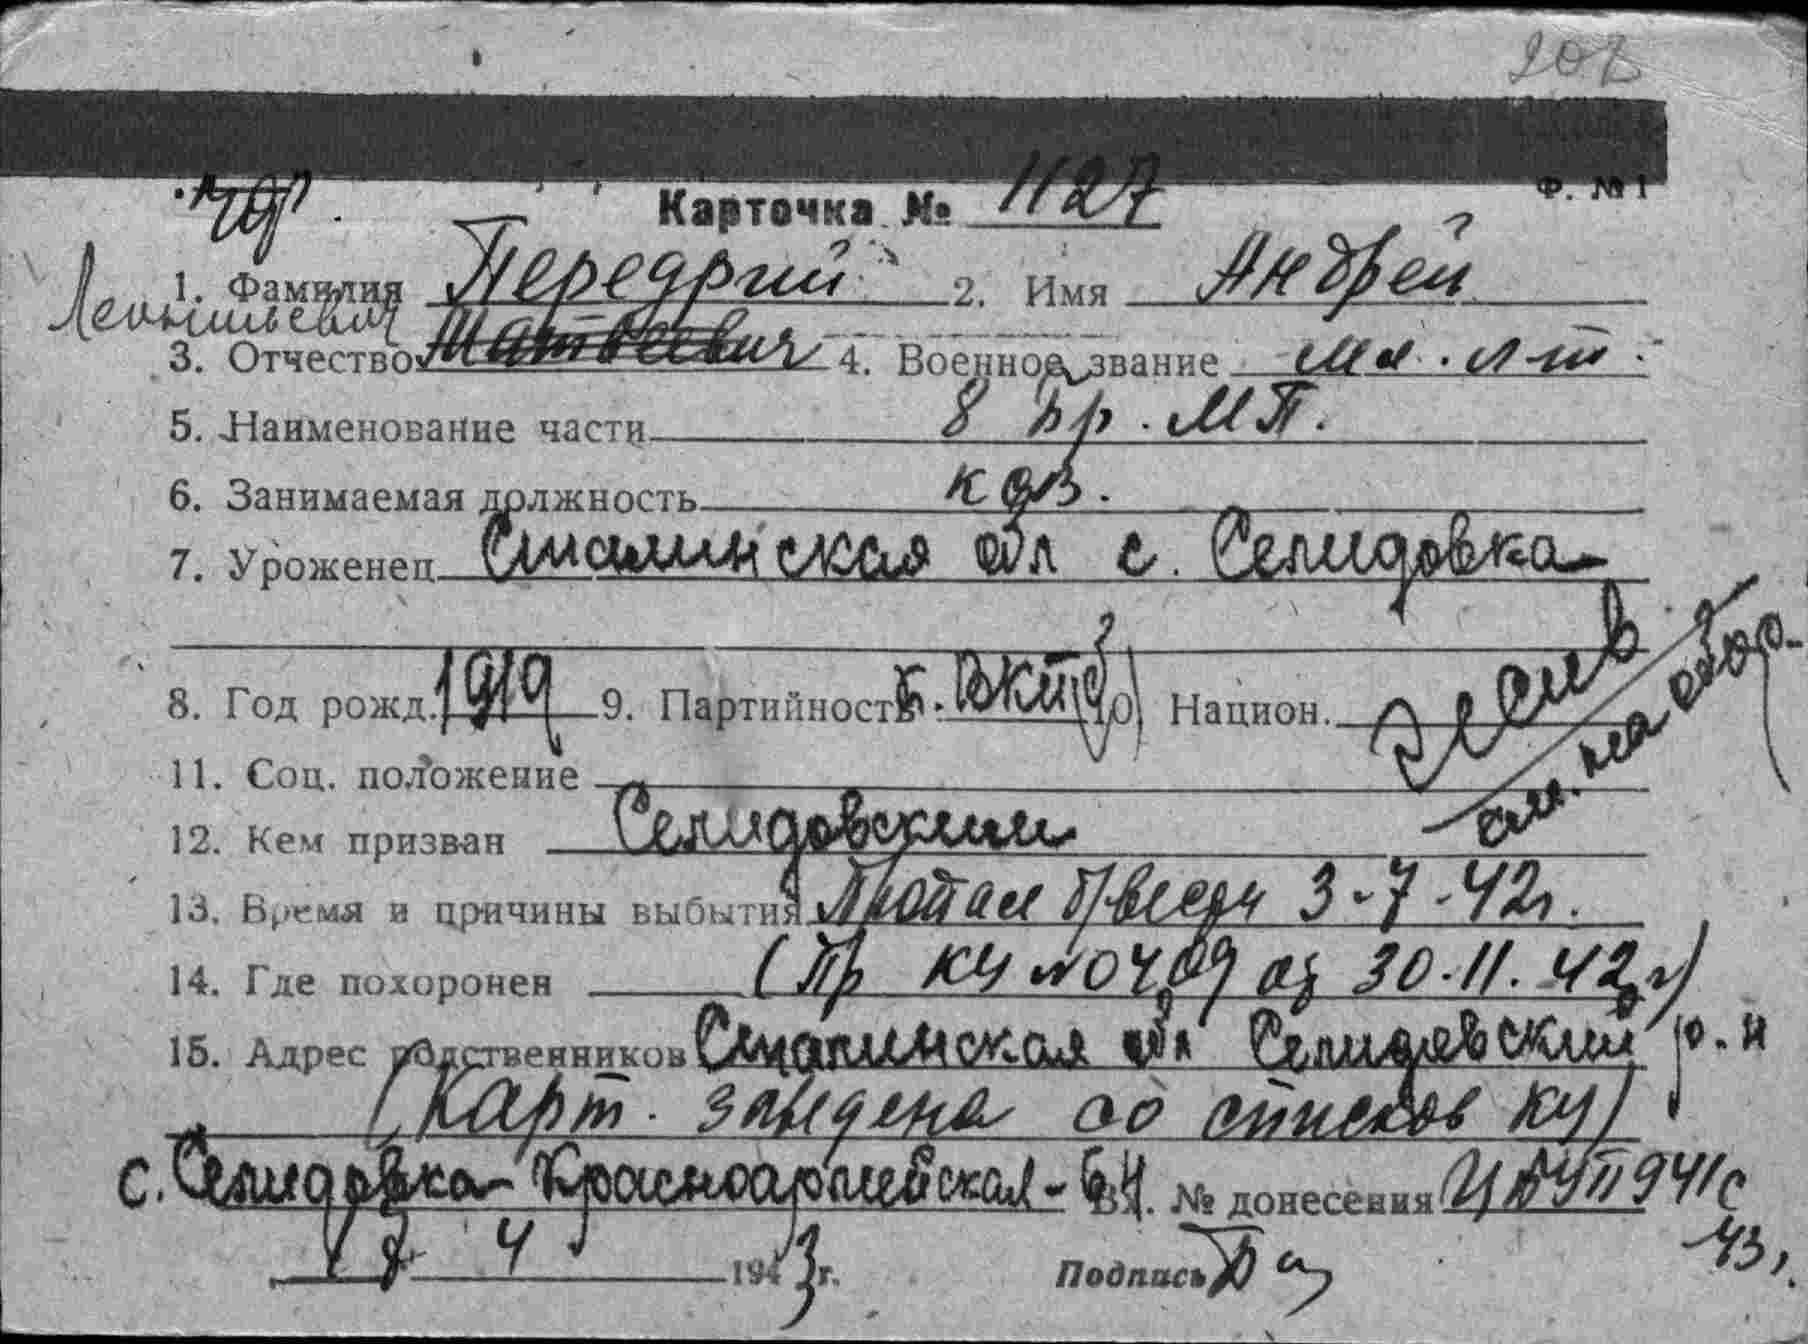 208
Ф. № 1
Карточка № 1127
1. Фамилия Передрий 2. Имя Андрей
3. Отчество Матвеевич 4. Военное звание мл. л-т.
5. Наименование части 8 кр. МП.
6. Занимаемая должность ком.
7. Уроженец Сталинская обл с. Селидовка
8. Год рожд. 1919 9. Партийность к. ВКП(б) 10) Национ.
жив
см. на обор.
11. Соц. положение
12. Кем призван Селидовским
13. Время и причины выбытия Пропал б/вести 3-7-42г.
14. Где похоронен (Пр КЧ № 0409 от 30.11.42г)
15. Адрес родственников Сталинская обл Селидовский р-н
(Карт. заведена со списков КЧ)
с. Селидовка Красноармейская - 64 Вх. № донесения ЦБУП 941с
43г.
18 4 1943 г. Подпись